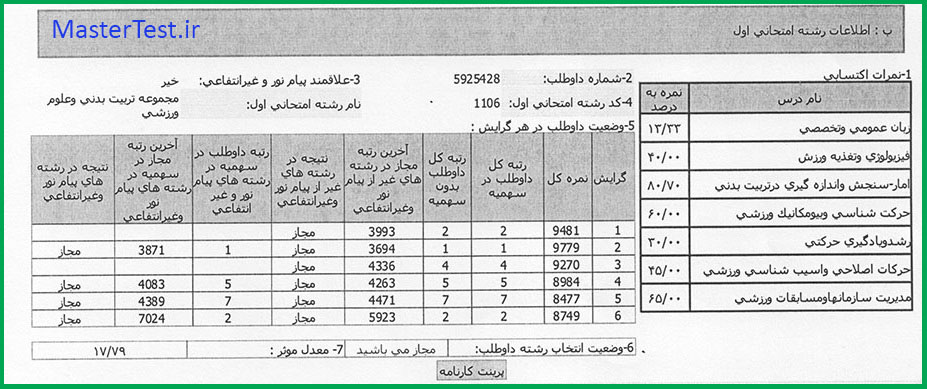 MasterTest.ir
ب : اطلاعات رشته امتحاني اول
1-نمرات اکتسابي
2-شماره داوطلب: 5925428
3-علاقمند پيام نور و غيرانتفاعي: خير
4-کد رشته امتحاني اول: 1106
نام رشته امتحاني اول: مجموعه تربيت بدني وعلوم ورزشي
نام درس نمره به درصد
زبان عمومي وتخصصي ۱۳/۳۳
فيزيولوژي وتغذيه ورزش ۴۰/۰۰
امار-سنجش واندازه گيري درتربيت بدني ۸۰/۷۰
حرکت شناسي وبيومکانيك ورزشي ۶۰/۰۰
رشدويادگيري حرکتي ۳۰/۰۰
حرکات اصلاحي واسيب شناسي ورزشي ۴۵/۰۰
مديريت سازمانهاومسابقات ورزشي ۶۵/۰۰
5-وضعيت داوطلب در هر گرايش :
گرايش
نمره کل
رتبه کل داوطلب در سهميه
رتبه کل داوطلب بدون سهميه
آخرين رتبه مجاز در رشته هاي غير از پيام نور وغيرانتفاعي
نتيجه در رشته هاي غير از پيام نور وغيرانتفاعي
رتبه داوطلب در سهميه در رشته هاي پيام نور و غير انتفاعي
آخرين رتبه مجاز در سهميه در رشته هاي پيام نور وغيرانتفاعي
نتيجه در رشته هاي پيام نور وغيرانتفاعي
1 9481 2 2 3993 مجاز
2 9779 1 1 3694 مجاز 1 3871 مجاز
3 9270 4 4 4336 مجاز
4 8984 5 5 4263 مجاز 5 4083 مجاز
5 8477 7 7 4471 مجاز 7 4389 مجاز
6 8749 2 2 5923 مجاز 2 7024 مجاز
6-وضعيت انتخاب رشته داوطلب: مجاز مي باشيد
7- معدل موثر : ۱۷/۷۹
پرينت کارنامه